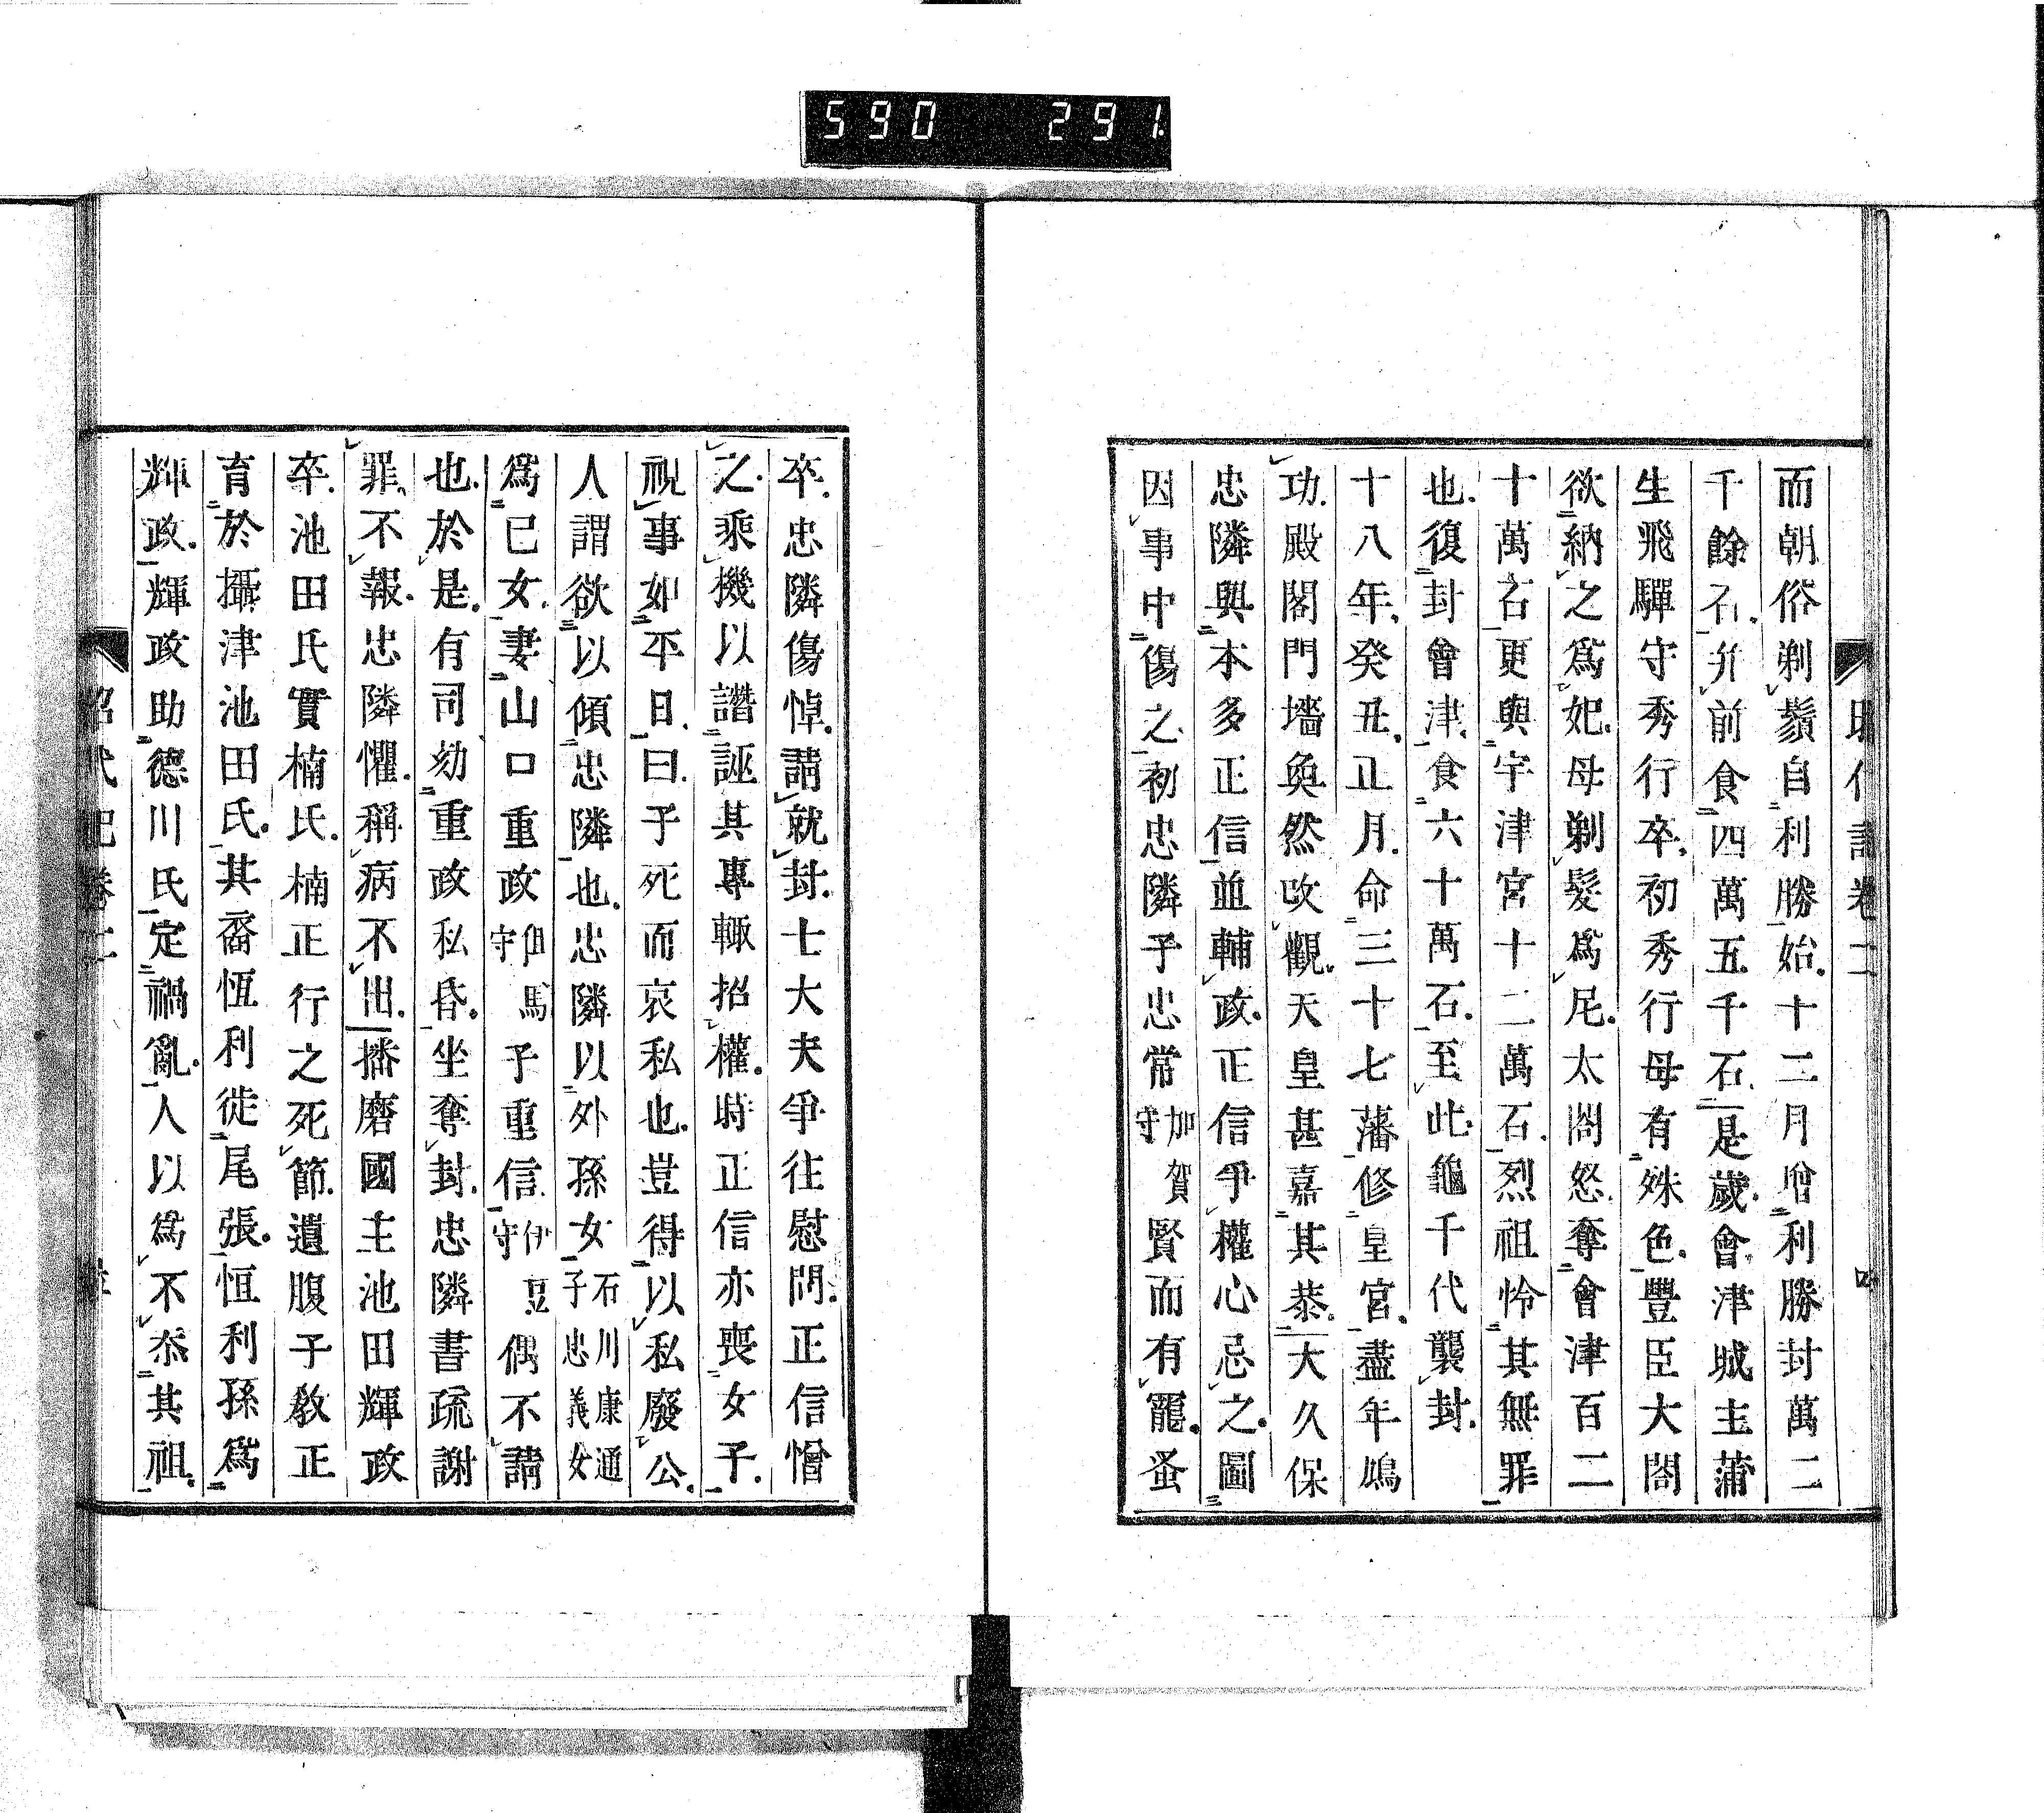 590 291
昭代記卷二
而朝俗剃鬚自利勝始十二月增利勝封萬二
千餘石幷前食四萬五千石是歲會津城主蒲
生飛驒守秀行卒初秀行母有殊色豐臣大閤
欲納之爲妃母剃髮爲尼太閤怒奪會津百二
十萬石更與宇津宮十二萬石烈祖怜其無罪
也復封會津食六十萬石至此龜千代襲封
十八年癸丑正月命三十七藩修皇宮盡年鳩
功殿閣門墻奐然改觀天皇甚嘉其恭大久保
忠隣與本多正信並輔政正信爭權心忌之圖
因事中傷之初忠隣子忠常加賀守賢而有寵蚤
卒忠隣傷悼請就封士大夫爭往慰問正信憎
之乘機以譖誣其專輙招權時正信亦喪女子
視事如平日曰子死而哀私也豈得以私廢公
人謂欲以傾忠隣也忠隣以外孫女石川康通子忠義女
爲已女妻山口重政但馬守子重信伊豆守偶不請
也於是有司劾重政私昏坐奪封忠隣書疏謝
罪不報忠隣懼稱病不出播磨國主池田輝政
卒池田氏實楠氏楠正行之死節遺腹子敎正
育於攝津池田氏其裔恆利徙尾張恒利孫爲
輝政輝政助德川氏定禍亂人以爲不忝其祖
昭代記卷二